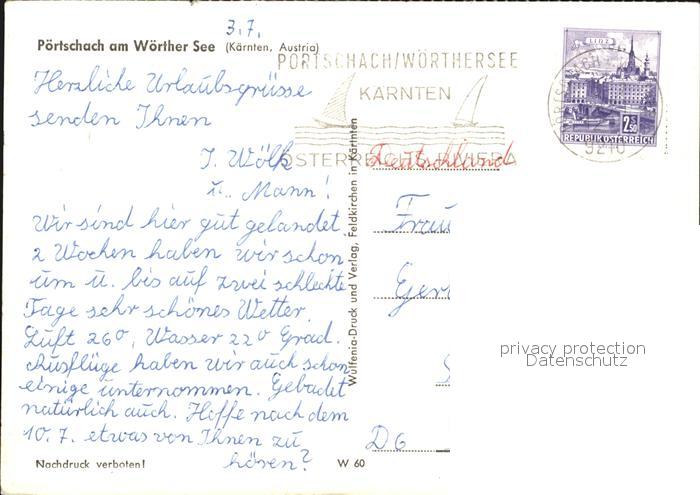 3.7.
Pörtschach am Wörther See (Kärnten, Austria)
PÖRTSCHACH/WÖRTHERSEE
KÄRNTEN
ÖSTERREICHS RIVIERA
LINZ
2.50
REPUBLIK ÖSTERREICH
9210
Herzliche Urlaubsgrüsse
senden Ihnen
J. Wölk
u. Mann!
Wir sind hier gut gelandet
2 Wochen haben wir schon
um u. bis auf zwei schlechte
Tage sehr schönes Wetter.
Luft 26°, Wasser 22° Grad.
Ausflüge haben wir auch schon
einige unternommen. Gebadet
natürlich auch. Hoffe nach dem
10.7. etwas von Ihnen zu
hören?
Nachdruck verboten!
W 60
Wulfenia-Druck und Verlag, Feldkirchen in Kärnten
Deutschland
Frau
D 6
privacy protection
Datenschutz